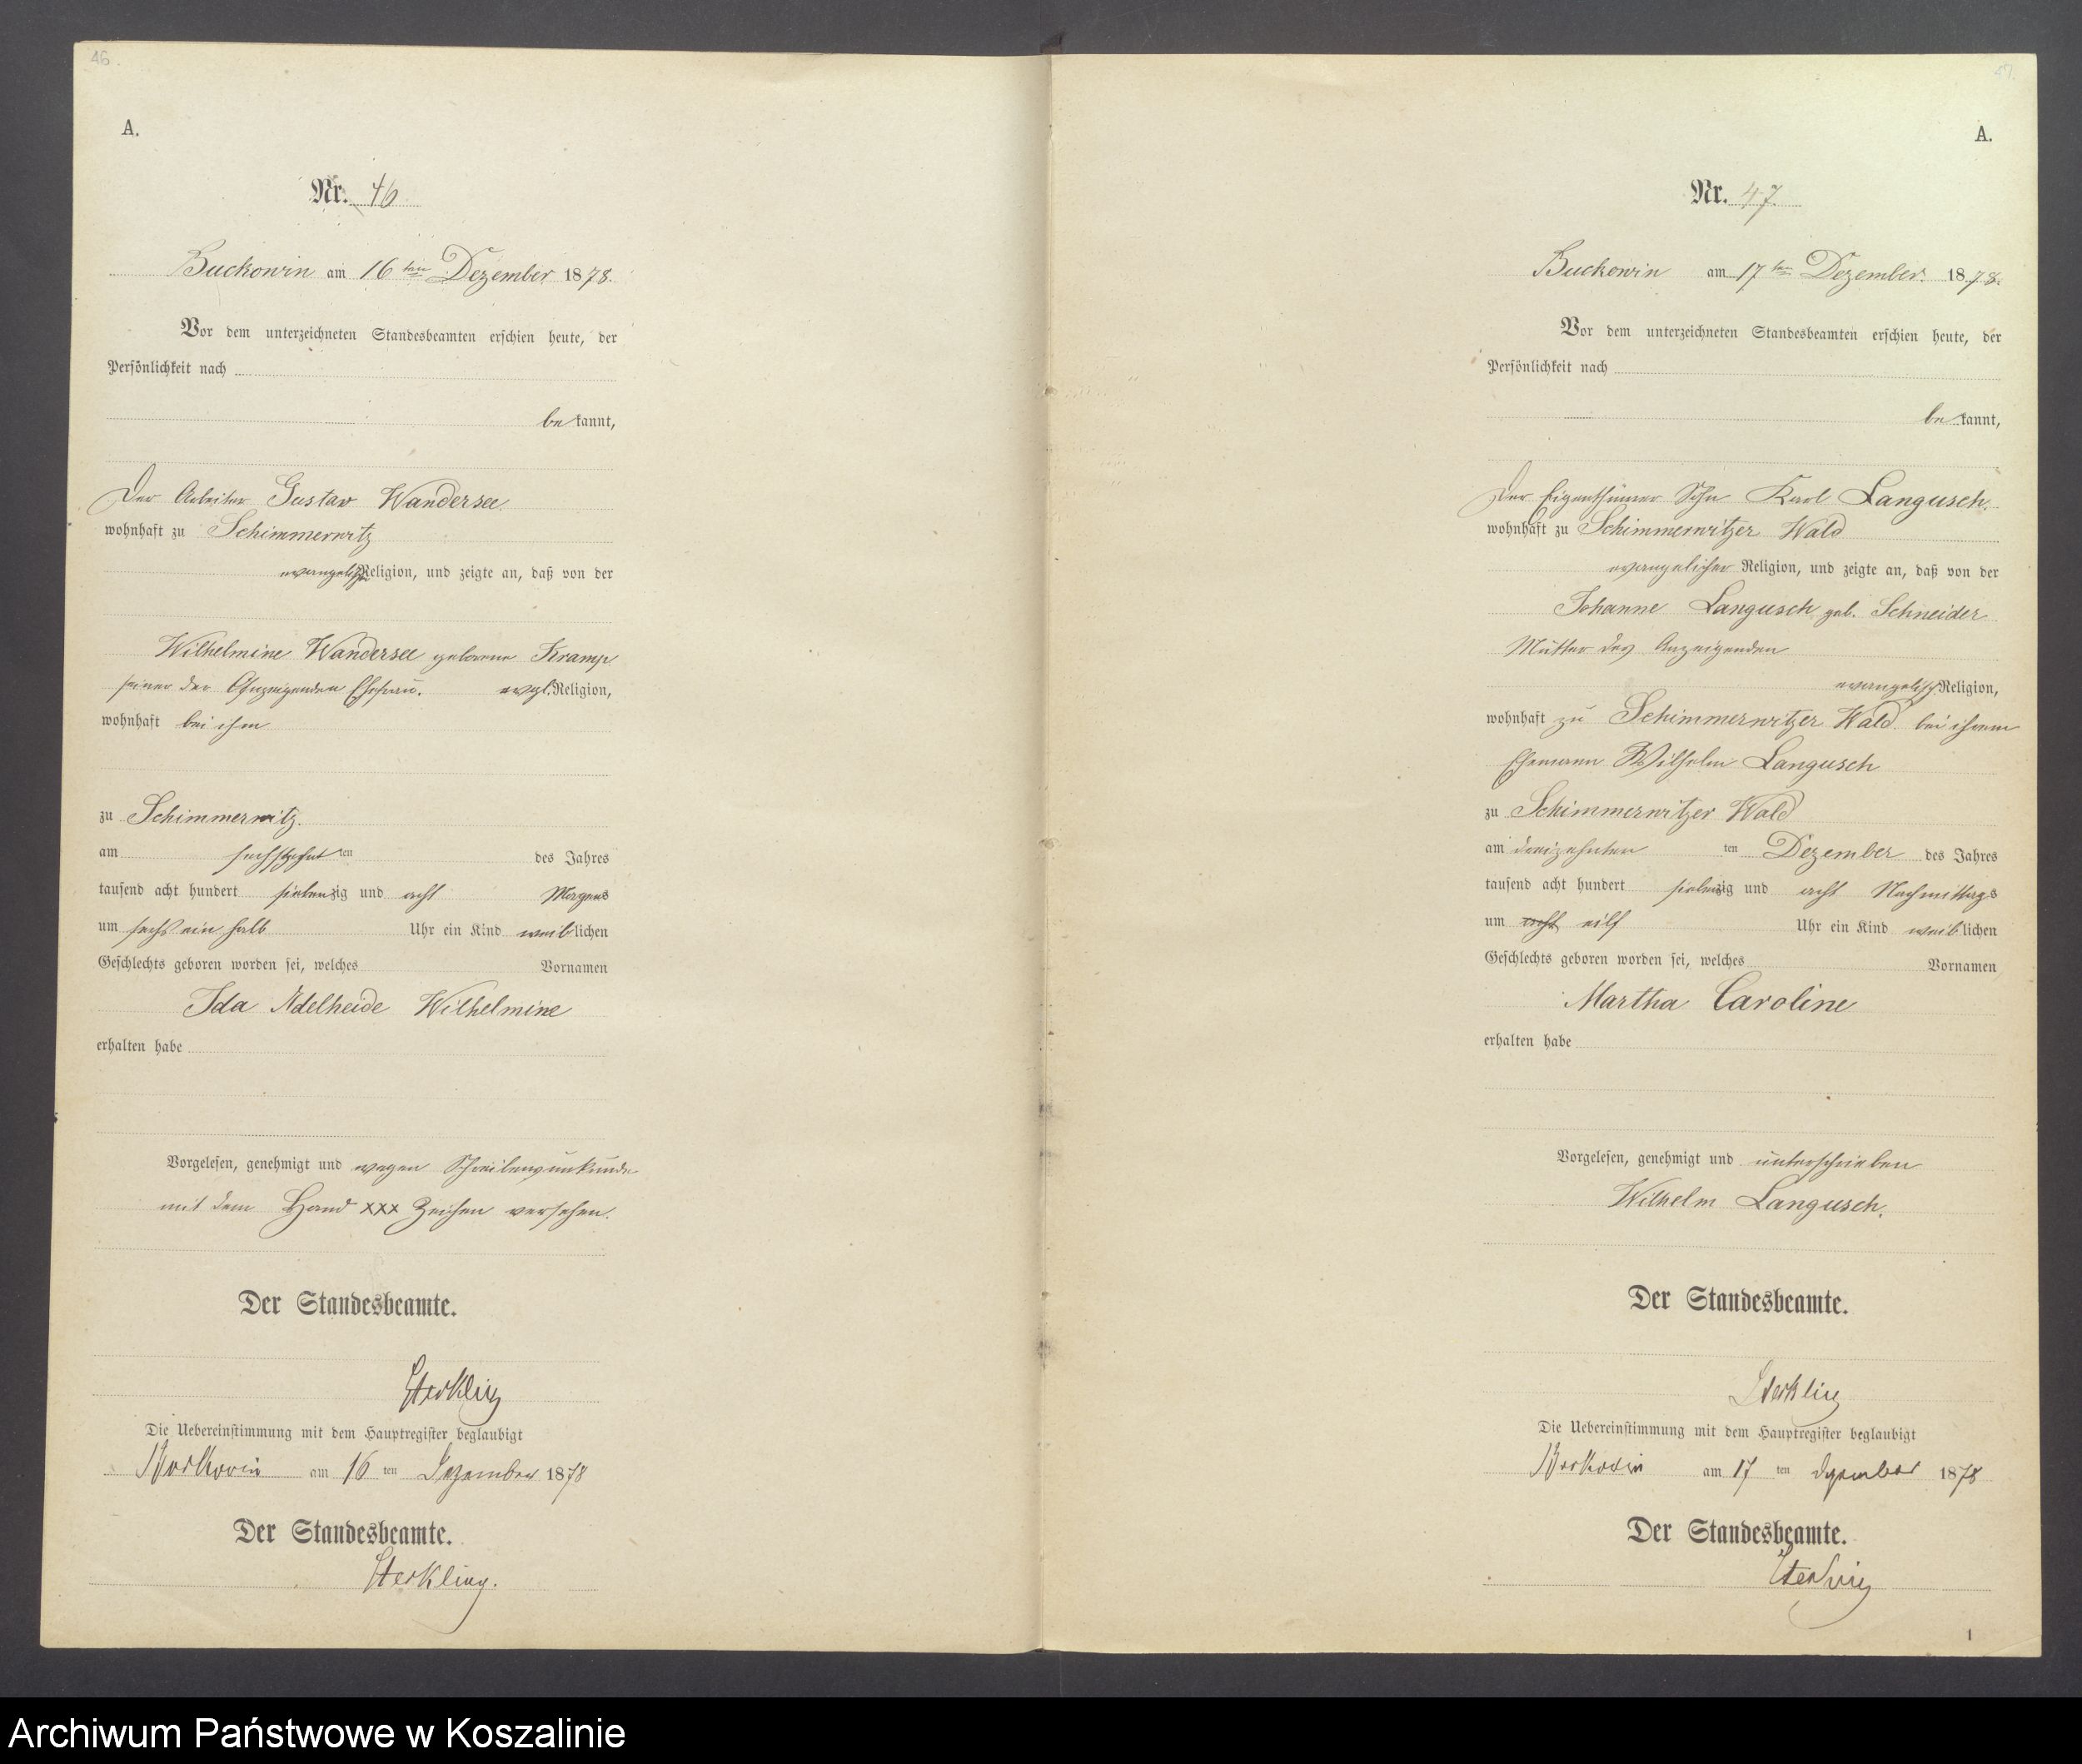 46.
A.
Nr. 46
Buckowin am 16 ten Dezember 1878.
Vor dem unterzeichneten Standesbeamten erschien heute, der
Persönlichkeit nach
be kannt,
Der Arbeiter Gustav Wandersee
wohnhaft zu Schimmerwitz
evangelischer Religion, und zeigte an, daß von der
Wilhelmine Wandersee geborene Kramp
seiner des Anzeigenden Ehefrau. evgl. Religion,
wohnhaft bei ihm
zu Schimmerwitz.
am sechszehnt ten des Jahres
tausend acht hundert siebenzig und acht Morgens
um sechs ein halb Uhr ein Kind weiblichen
Geschlechts geboren worden sei, welches Vornamen
Ida Adelheide Wilhelmine
erhalten habe
Vorgelesen, genehmigt und wegen Schreibensunkunde
mit dem Hand xxx Zeichen versehen.
Der Standesbeamte.
Sterkling
Die Uebereinstimmung mit dem Hauptregister beglaubigt
am 16 ten Dezember 1878
Der Standesbeamte.
Sterkling.
47.
A.
Nr. 47.
Buckowin am 17 ten Dezember 1878.
Vor dem unterzeichneten Standesbeamten erschien heute, der
Persönlichkeit nach
be kannt,
Der Eigenthümer Sohn Karl Langusch.
wohnhaft zu Schimmerwitzer Wald
evangelischer Religion, und zeigte an, daß von der
Johanne Langusch geb. Schneider
Mutter des Anzeigenden
evangelisch Religion,
wohnhaft zu Schimmerwitzer Wald bei ihrem
Ehemann Wilhelm Langusch
zu Schimmerwitzer Wald
am dreizehnten ten Dezember des Jahres
tausend acht hundert siebenzig und acht Nachmittags
um acht eilf Uhr ein Kind weiblichen
Geschlechts geboren worden sei, welches Vornamen
Martha Caroline
erhalten habe
Vorgelesen, genehmigt und unterschrieben
Wilhelm Langusch.
Der Standesbeamte.
Sterkling
Die Uebereinstimmung mit dem Hauptregister beglaubigt
am 17 ten Dezember 1878
Der Standesbeamte.
Sterkling
1
Archiwum Państwowe w Koszalinie